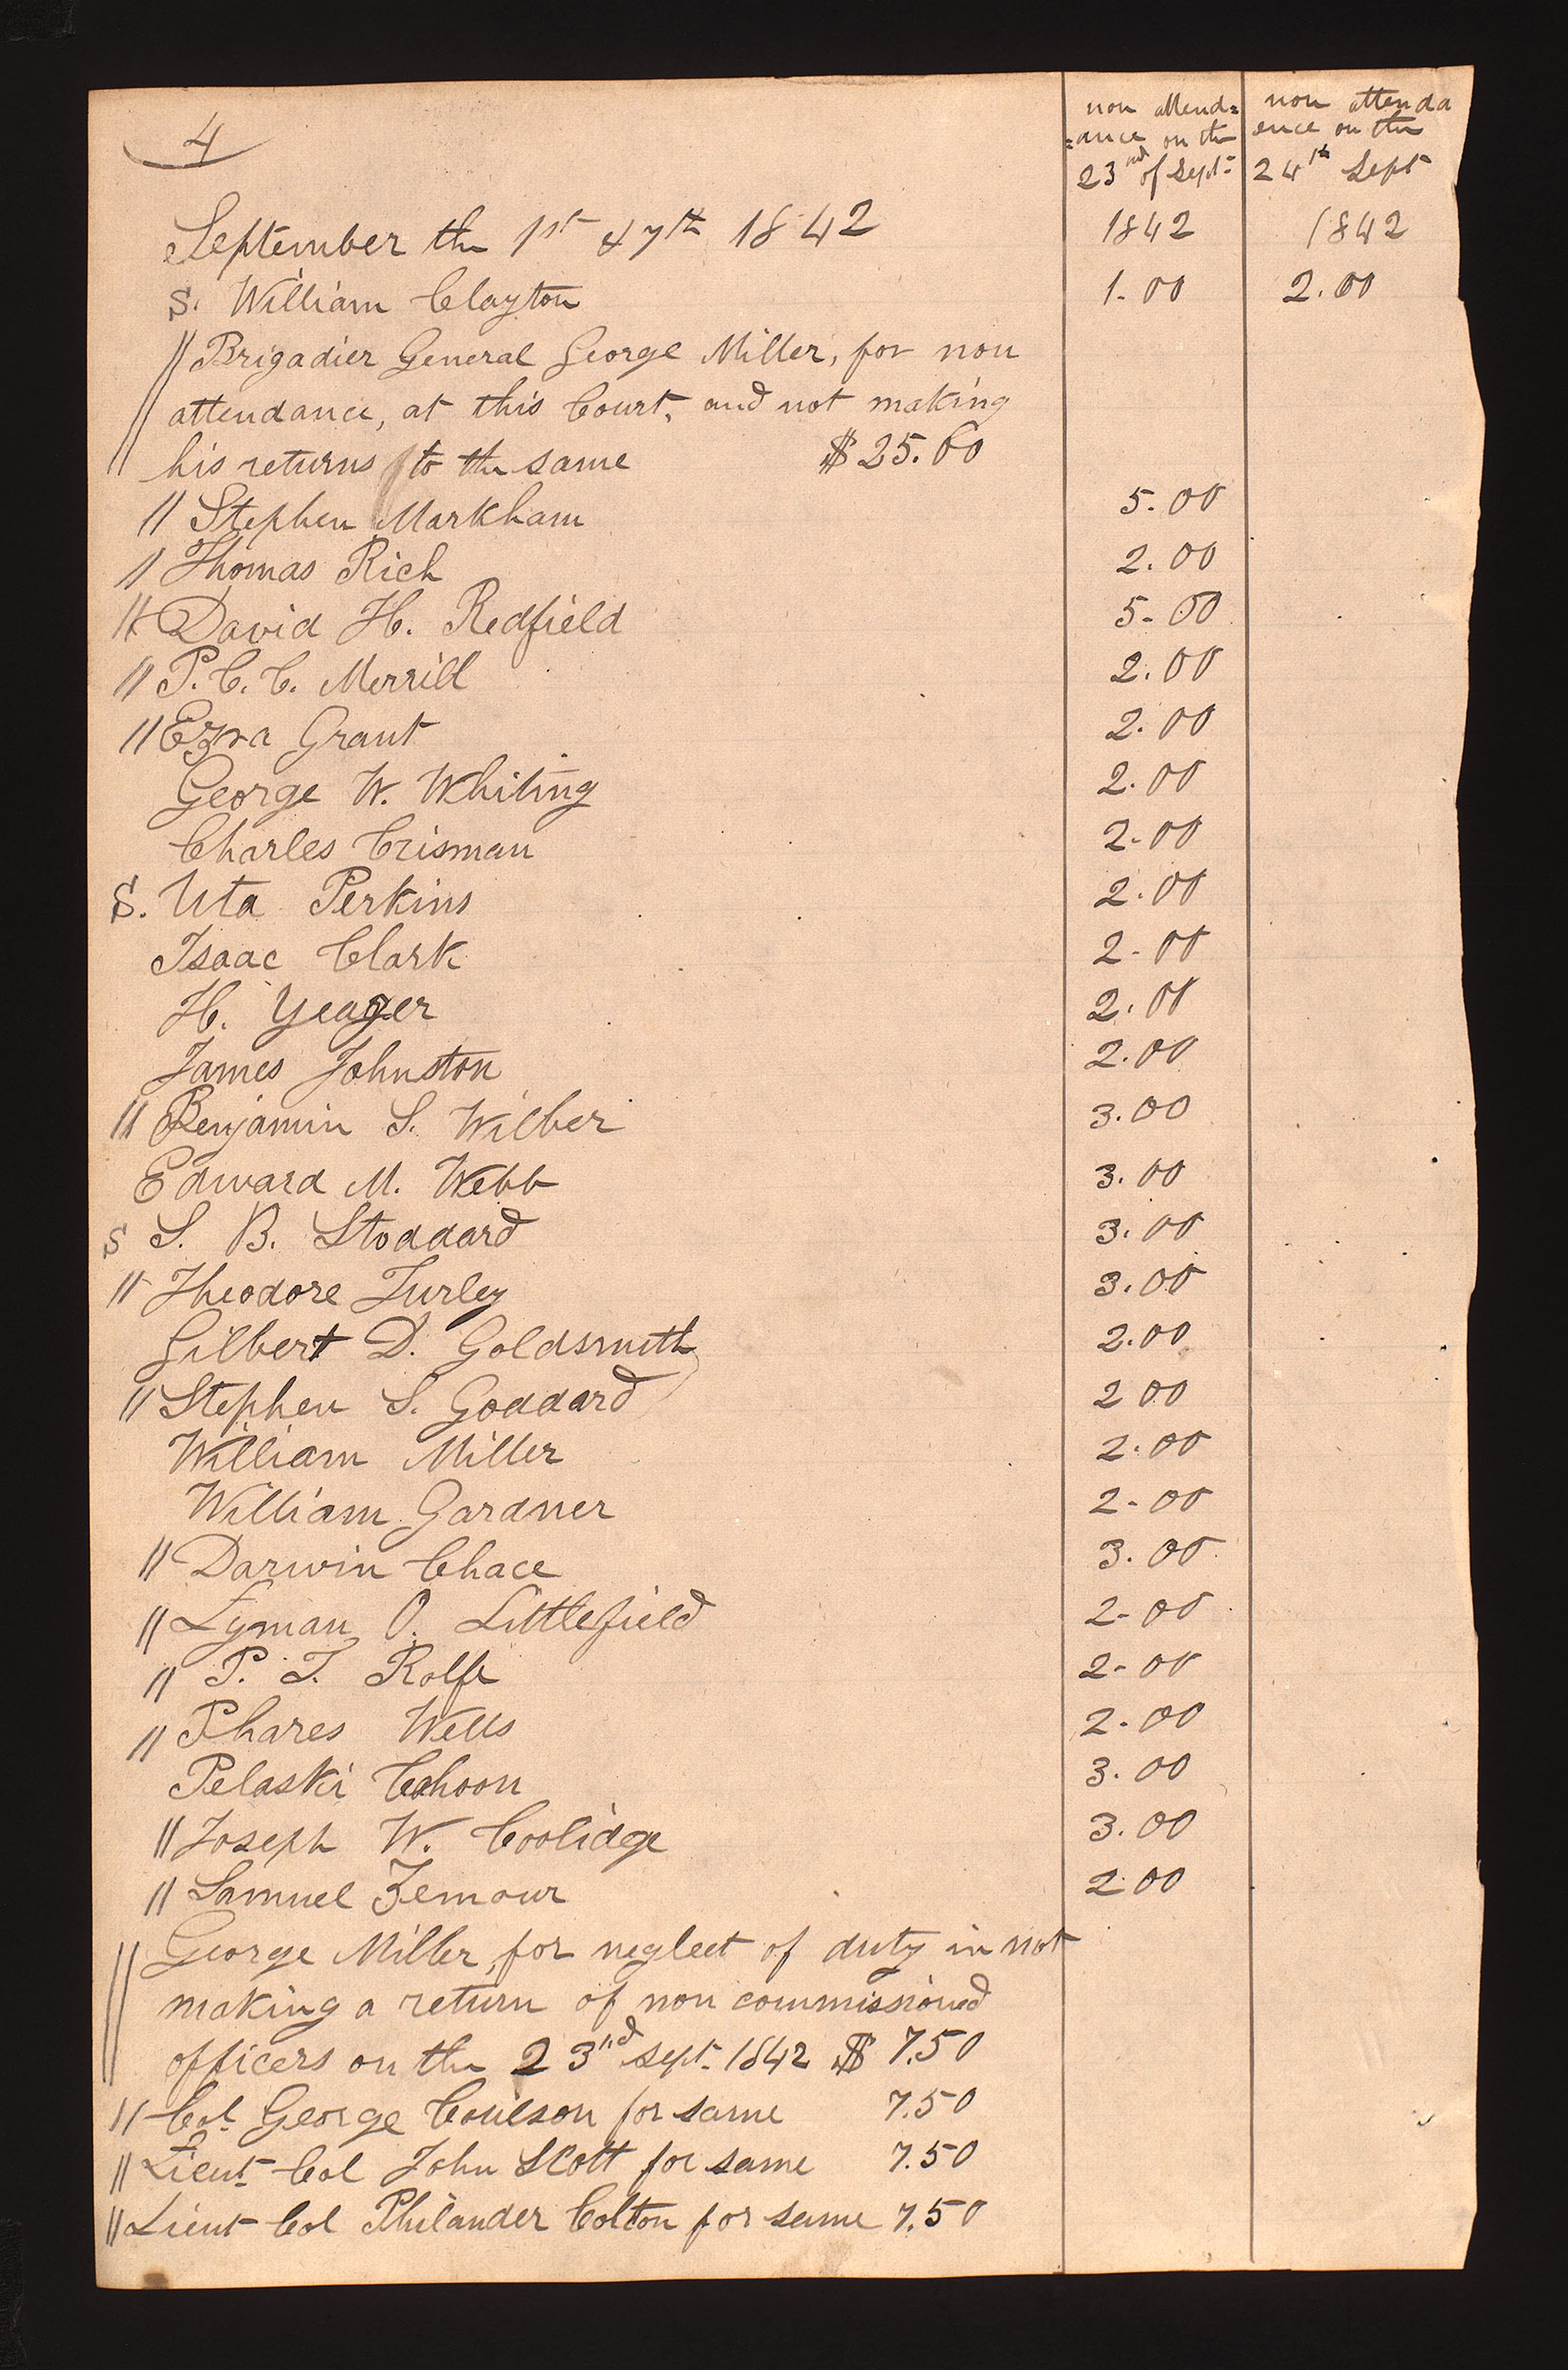 4
non attend= non attenda
=ance on the ence on the
23nd of Sept- 24th Sept
September the 1st & 7th 1842 1842 1842
S. William Clayton 1.00 2.00
// Brigadier General George Miller, for non
attendance, at this Court, and not making
his returns to the same $25.00
// Stephen Markham 5.00
// Thomas Rich 2.00
// David H. Redfield 5.00
// P. C. C. Merrill 2.00
// Ezra Grant 2.00
George W. Whiting 2.00
Charles Crisman 2.00
S. Uta Perkins 2.00
Isaac Clark 2.00
H. Yeager 2.00
James Johnston 2.00
// Benjamin S. Wilber 3.00
Edward M. Webb 3.00
S S. B. Stoddard 3.00
// Theodore Turley 3.00
Gilbert D. Goldsmith 2.00
// Stephen S. Goddard 2 00
William Miller 2.00
William Gardner 2.00
// Darwin Chace 3.00
// Lyman O. Littlefield 2.00
// P. T. Rolfe 2.00
// Phares Wells 2.00
Pelaski Cahoon 3.00
// Joseph W. Coolidge 3.00
// Samuel Zemour 2.00
// George Miller, for neglect of duty in not
making a return of non commissioned
officers on the 23nd Sept. 1842 $ 7.50
// Col George Coulson for same 7.50
// Lieut- Col John Scott for same 7.50
// Lieut- Col Philander Colton for same 7.50